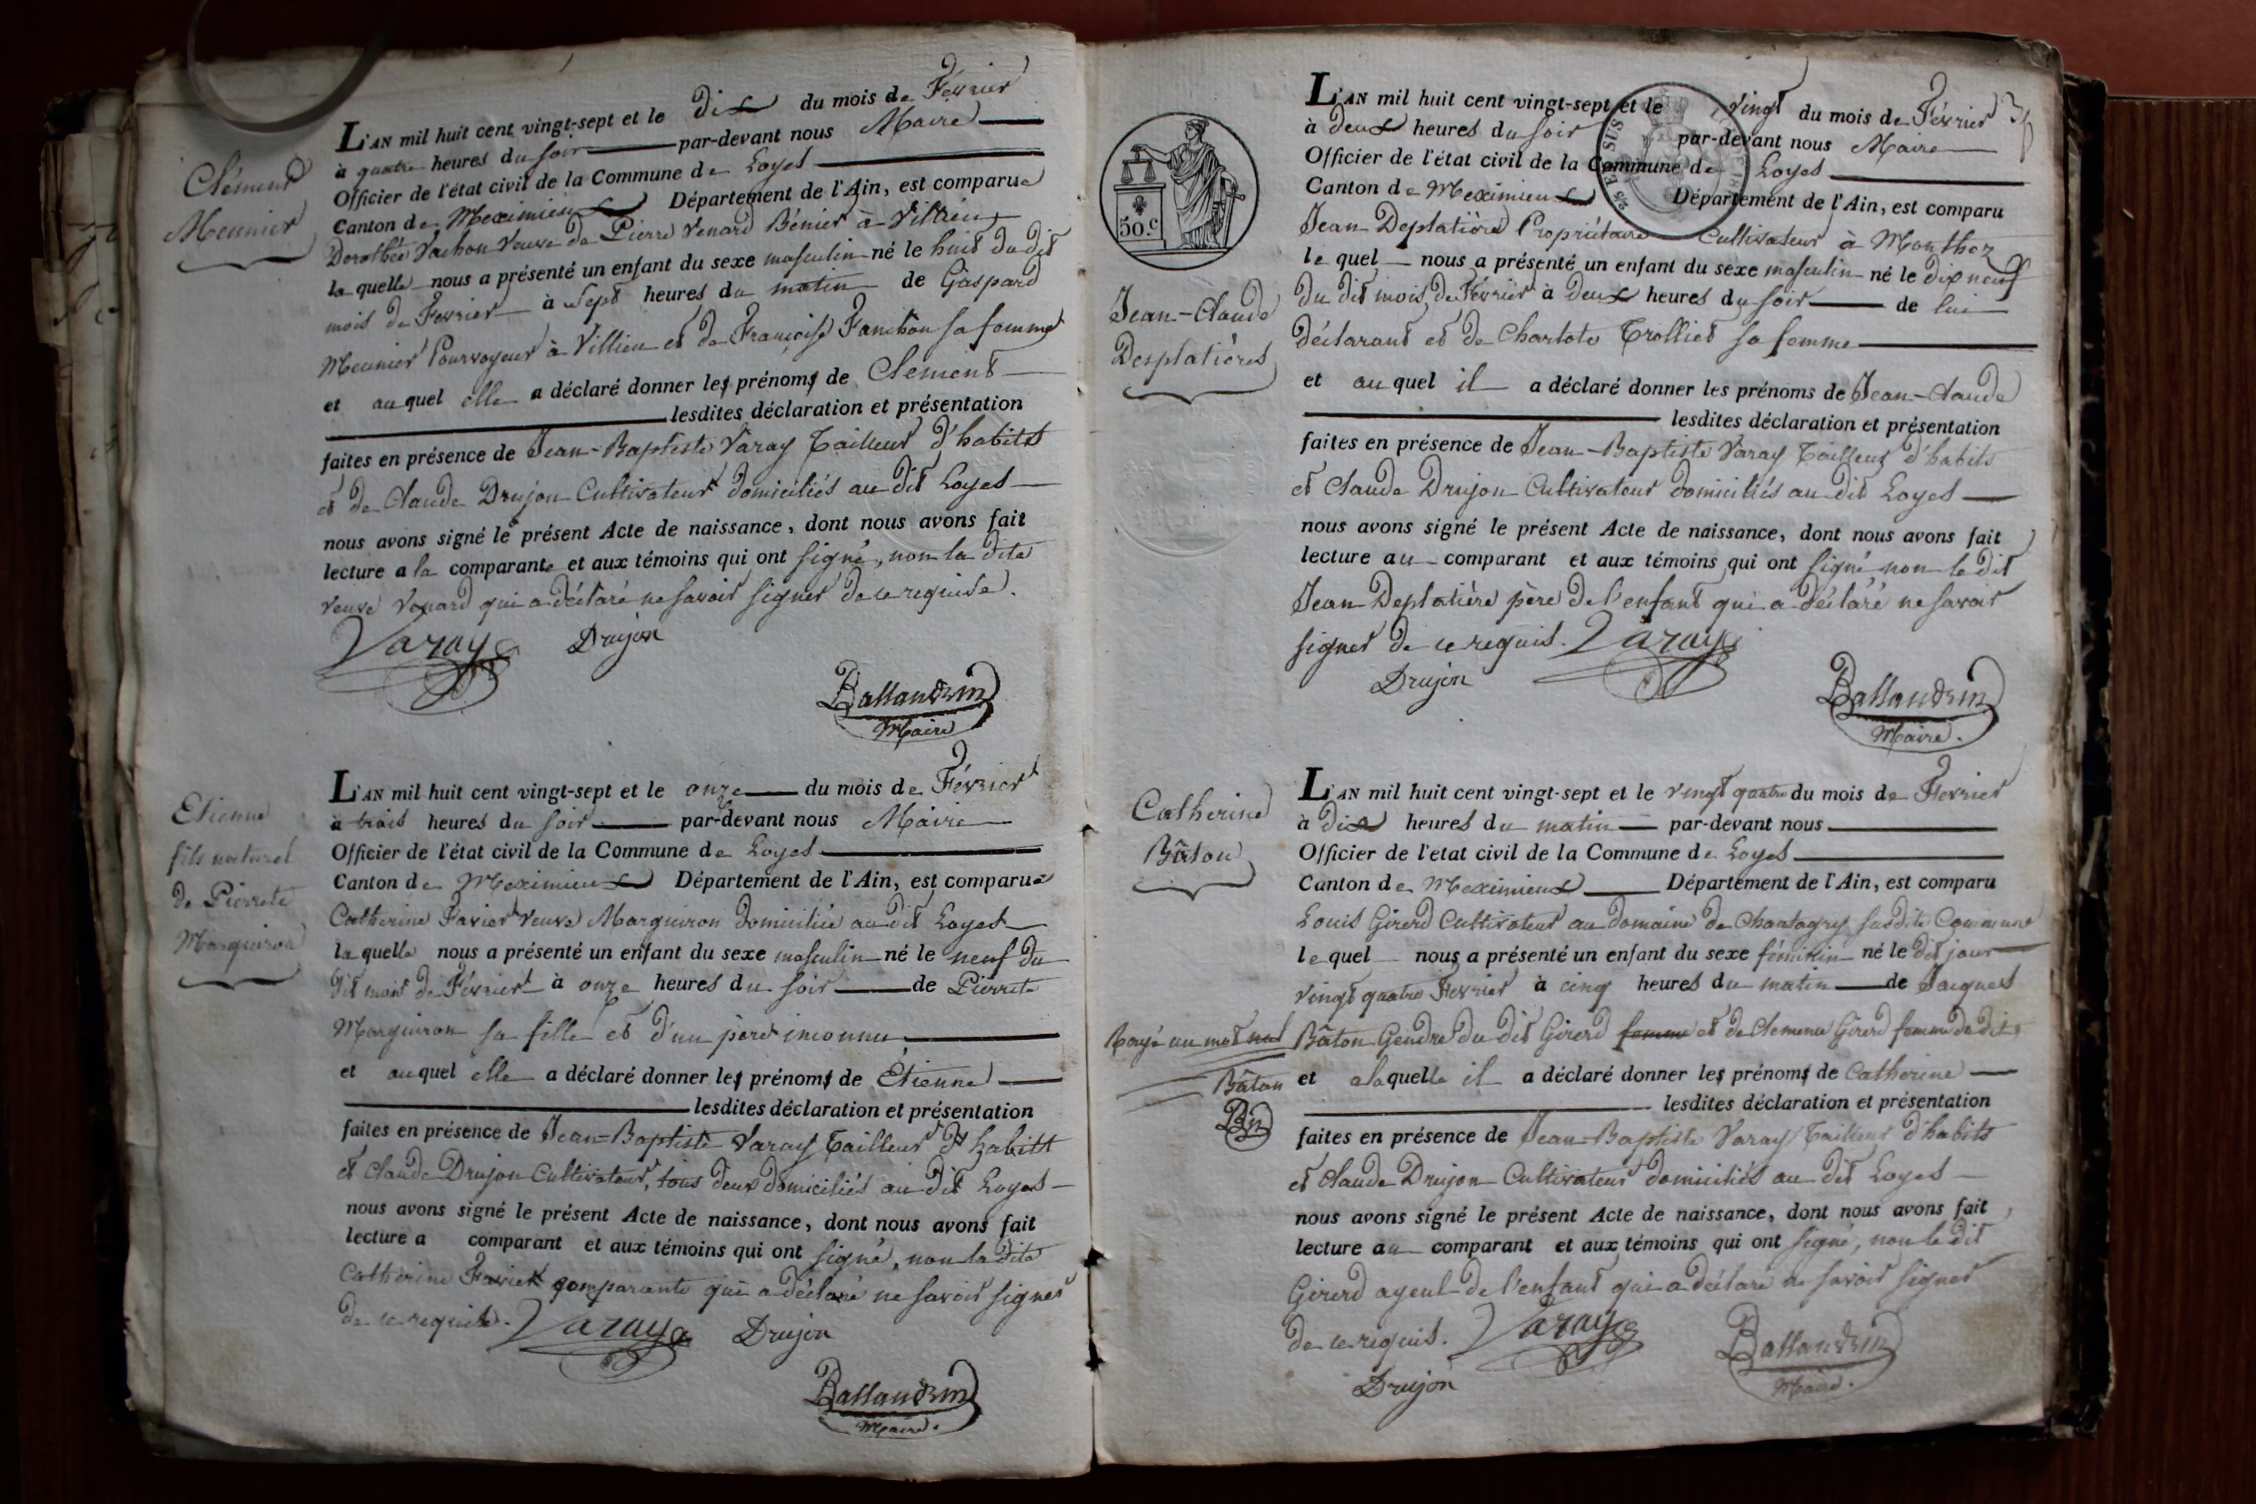 Clément
Meunier
L'AN mil huit cent vingt-sept et le dix du mois de Février
à quatre heures du soir par-devant nous Maire
Officier de l'état civil de la Commune de Loyes
Canton de Meximieux Département de l'Ain, est comparue
Dorothée Vachon Veuve de Pierre Venard Bénier à Villieu
laquelle nous a présenté un enfant du sexe masculin né le huit du dit
mois de Février à Sept heures du matin de Gaspard
Meunier Pourvoyeur à Villieu et de Françoise Fanchon sa femme
et auquel elle a déclaré donner les prénoms de Clement
lesdites déclaration et présentation
faites en présence de Jean-Baptiste Varay Tailleur d'habits
et de Claude Drujon Cultivateur domiciliés au dit Loyes
nous avons signé le présent Acte de naissance, dont nous avons fait
lecture a la comparante et aux témoins qui ont signé, non la dite
veuve Venard qui a déclaré ne savoir signer de ce requise.
Varay Drujon
Ballandrin
Maire
Etienne
fils naturel
de Pierrete
Marguiron
L'AN mil huit cent vingt-sept et le onze du mois de Février
à trois heures du soir par-devant nous Maire
Officier de l'état civil de la Commune de Loyes
Canton de Meximieux Département de l'Ain, est comparue
Catherine Favier veuve Marguiron domiciliée au dit Loyes
laquelle nous a présenté un enfant du sexe masculin né le neuf du
dit mois de Février à onze heures du soir de Pierrete
Marguiron sa fille et d'un père inconnu
et auquel elle a déclaré donner les prénoms de Etienne
lesdites déclaration et présentation
faites en présence de Jean-Baptiste Varay Tailleur d'habits
et Claude Drujon Cultivateur, tous deux domiciliés au dit Loyes
nous avons signé le présent Acte de naissance, dont nous avons fait
lecture a comparant et aux témoins qui ont signé, non la dite
Catherine Favier comparante qui a déclaré ne savoir signer
de ce requise. Varay Drujon
Ballandrin
Maire.
50.c
Jean-Claude
Desplatières
L'AN mil huit cent vingt-sept et le vingt du mois de Février
à deux heures du soir par-devant nous Maire
Officier de l'état civil de la Commune de Loyes
Canton de Meximieux Département de l'Ain, est comparu
Jean Deplatière Propriétaire Cultivateur à Monthoz
lequel nous a présenté un enfant du sexe masculin né le dix neuf
du dit mois de Février à deux heures du soir de lui
déclarant et de Charlote Trolliet sa femme
et auquel il a déclaré donner les prénoms de Jean-Claude
lesdites déclaration et présentation
faites en présence de Jean-Baptiste Varay Tailleur d'habits
et Claude Drujon Cultivateur domiciliés au dit Loyes
nous avons signé le présent Acte de naissance, dont nous avons fait
lecture au comparant et aux témoins qui ont signé non le dit
Jean Deplatière père de l'enfant qui a déclaré ne savoir
signer de ce requis. Varay
Drujon
Ballandrin
Maire.
Catherine
Bâton
L'AN mil huit cent vingt-sept et le vingt quatre du mois de Fevrier
à dix heures du matin par-devant nous
Officier de l'etat civil de la Commune de Loyes
Canton de Meximieux Département de l'Ain, est comparu
Louis Girerd Cultivateur au domaine de Chantagrey susdite Commune
lequel nous a présenté un enfant du sexe féminin né le dit jour
vingt quatre Fevrier à cinq heures du matin de Jacques
Bâton Gendre du dit Girerd femme et de Clemence Girerd femme du dit
Rayé un mot nul
Bâton
et a laquelle il a déclaré donner les prénoms de Catherine
lesdites déclaration et présentation
faites en présence de Jean-Baptiste Varay Tailleur d'habits
et Claude Drujon Cultivateur domiciliés au dit Loyes
nous avons signé le présent Acte de naissance, dont nous avons fait
lecture au comparant et aux témoins qui ont signé, non le dit
Girerd ayeul de l'enfant qui a déclaré ne savoir signer
de ce requis. Varay
Drujon
Ballandrin
Maire.